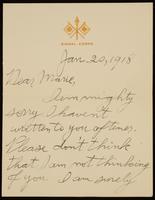 SIGNAL CORPS
Jan. 20, 1918
Dear Marie,
I am mighty
sorry I haven't
written to you oftener.
Please don't think
that I am not thinking
of you. I am surely